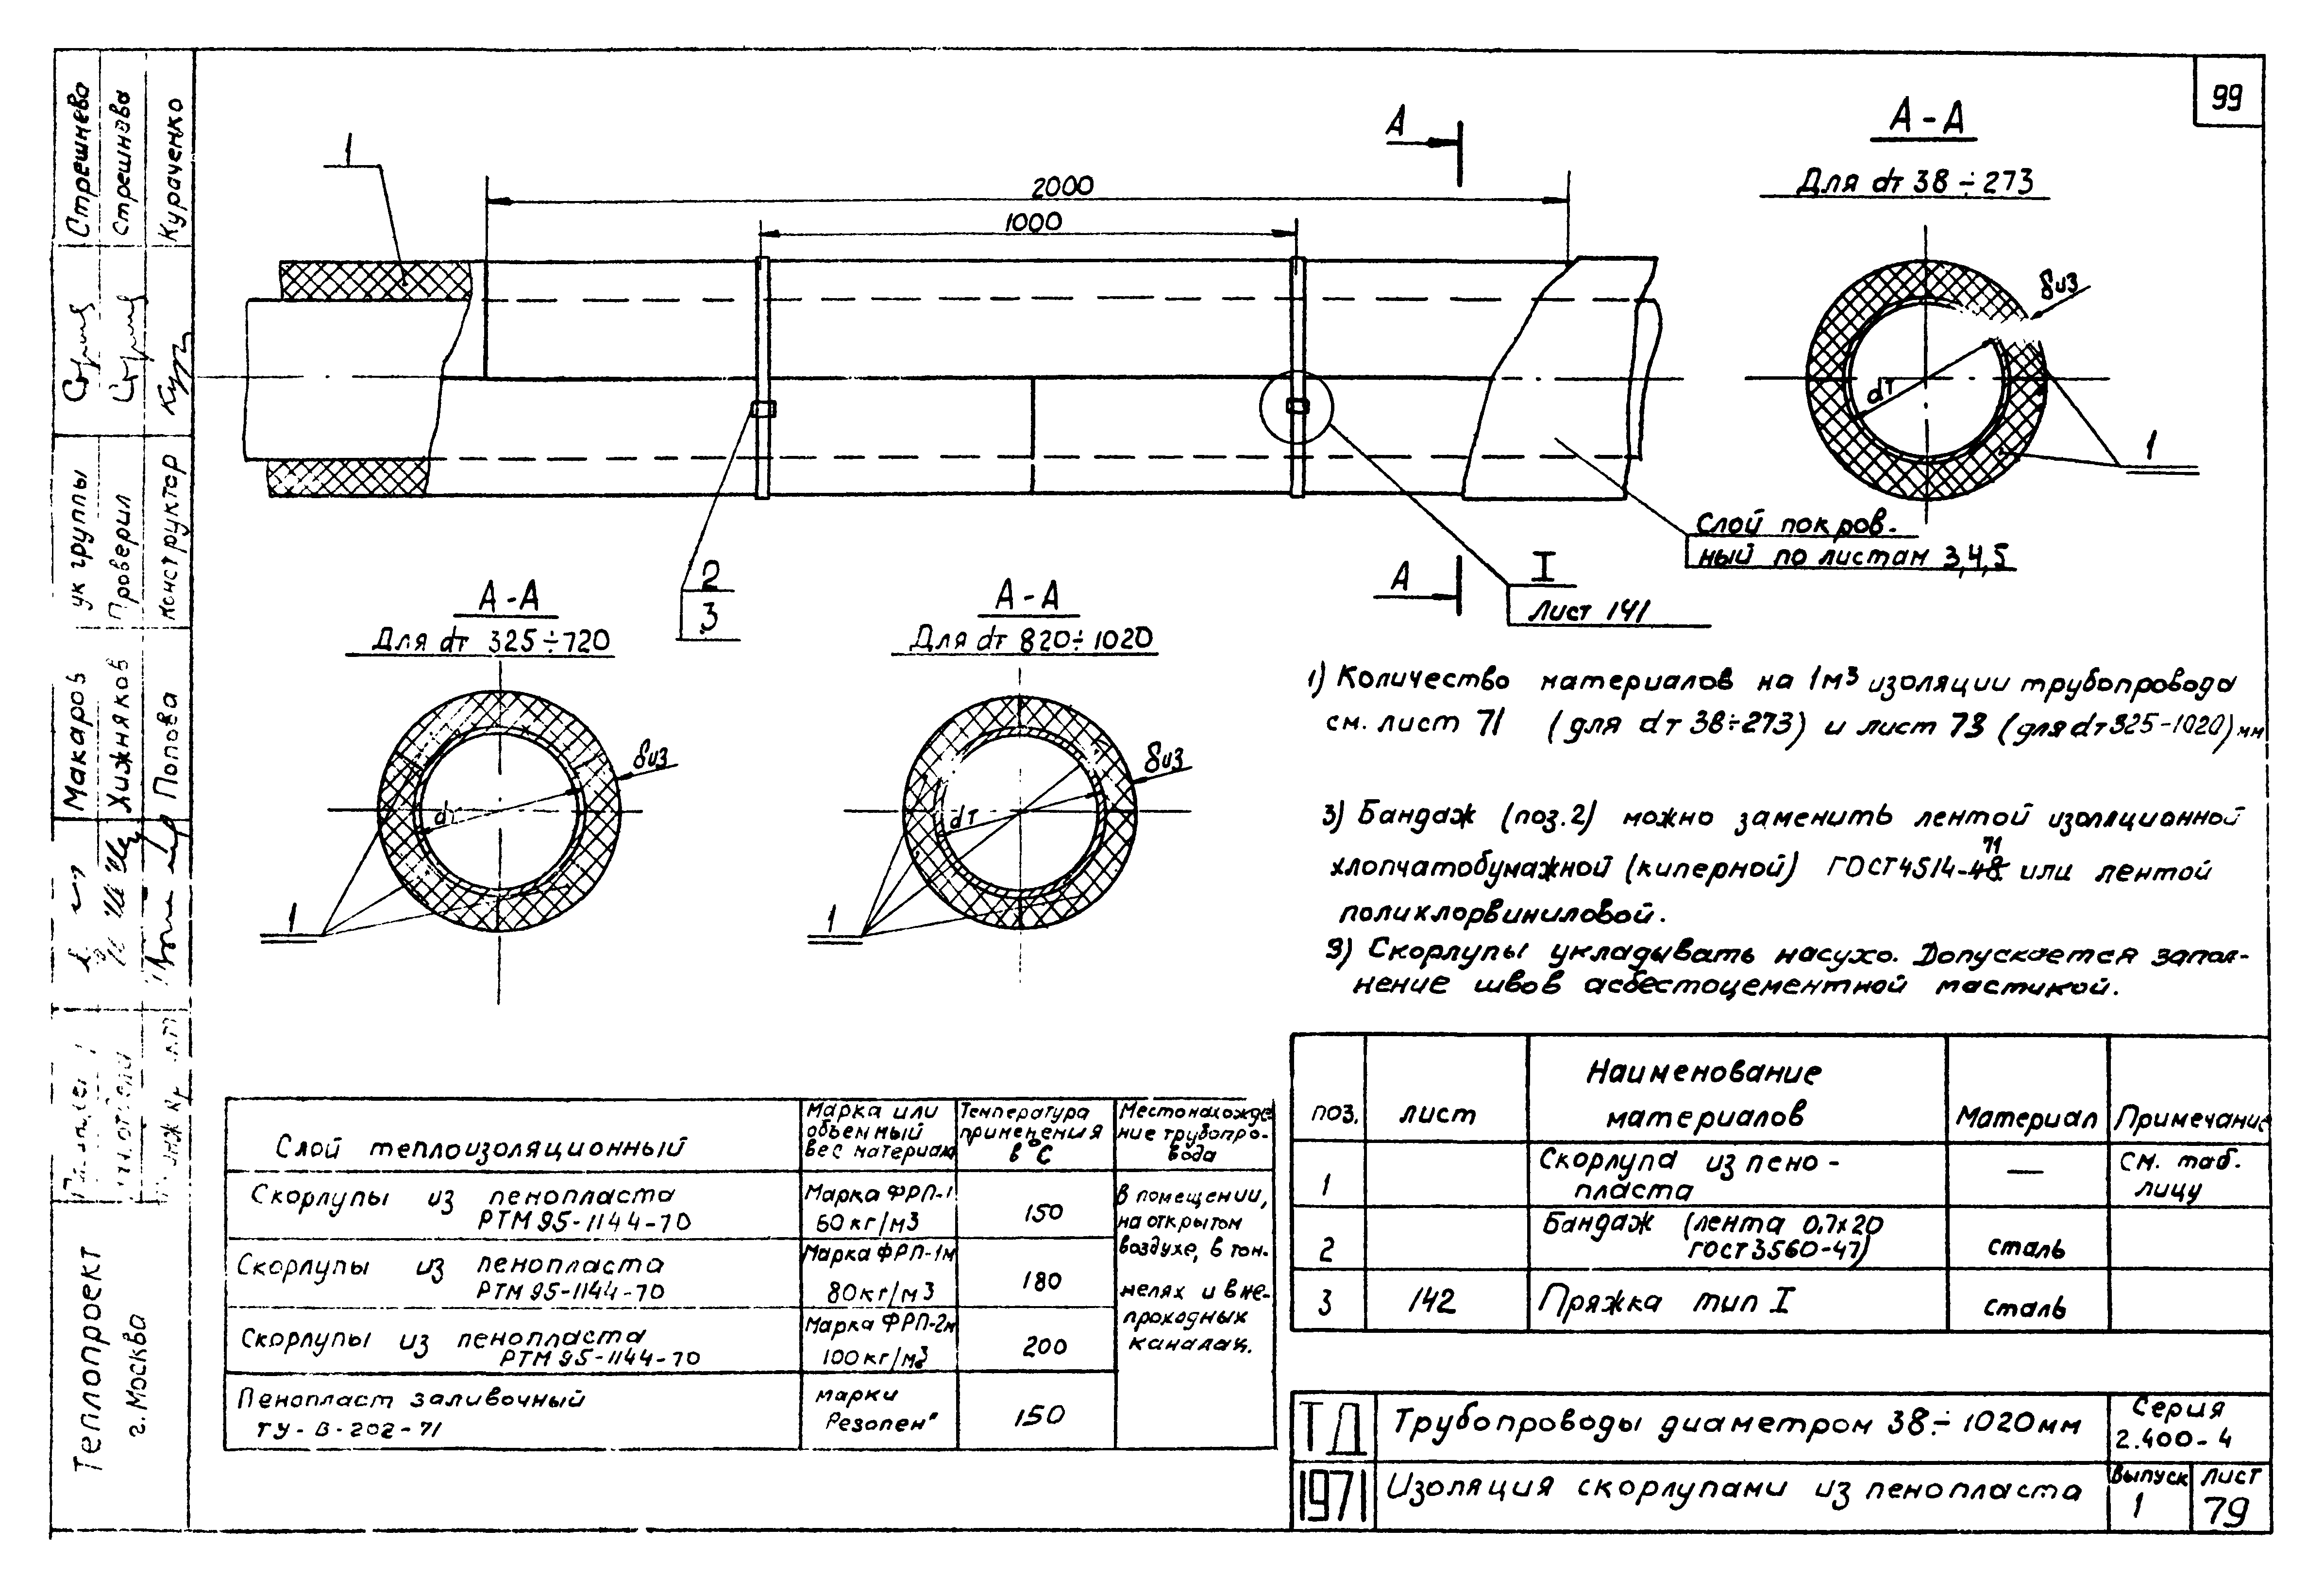 99
А
1
2000
1000
А - А
Для dт 38 ÷ 273
δиз
dт
1
Слой покров-
ный по листам 3,4,5
А
I
Лист 141
2
3
А - А
Для dт 325 ÷ 720
δиз
dт
1
А - А
Для dт 820 ÷ 1020
δиз
dт
1
1) Количество материалов на 1м3 изоляции трубопровода
см. лист 71 (для dт 38÷273) и лист 73 (для dт 325-1020) мм
3) Бандаж (поз.2) можно заменить лентой изоляционной
71
хлопчатобумажной (киперной) ГОСТ 4514-48 или лентой
поликлорвиниловой.
3) Скорлупы укладывать насухо. Допускается запол-
нение швов асбестоцементной мастикой.
поз. лист Наименование материалов Материал Примечание
1 Скорлупа из пено-
пласта — См. таб-
лицу
2 Бандаж (лента 0,7х20
ГОСТ 3560-47) сталь
3 142 Пряжка тип I сталь
Слой теплоизоляционный
Марка или
объемный
вес материала
Температура
применения
в °С
Местонахожде
ние трубопро-
вода
Скорлупы из пенопласта
РТМ 95-1144-70
Марка ФРП-1
60 кг/м3
150
Скорлупы из пенопласта
РТМ 95-1144-70
Марка ФРП-1м
80 кг/м3
180
Скорлупы из пенопласта
РТМ 95-1144-70
Марка ФРП-2м
100 кг/м3
200
Пенопласт заливочный
ТУ-В-202-71
марки
Резопен"
150
в помещении,
на открытом
воздухе, в тон-
нелях и в не-
проходных
каналах.
ТД
1971
Трубопроводы диаметром 38÷1020мм
Изоляция скорлупами из пенопласта
Серия
2.400-4
Выпуск
1
лист
79
Стрешнева
Стрешнева
Кураченко
ук группы
Проверил
Конструктор
Макаров
Хижняков
Попова
Теплопроект
г. Москва